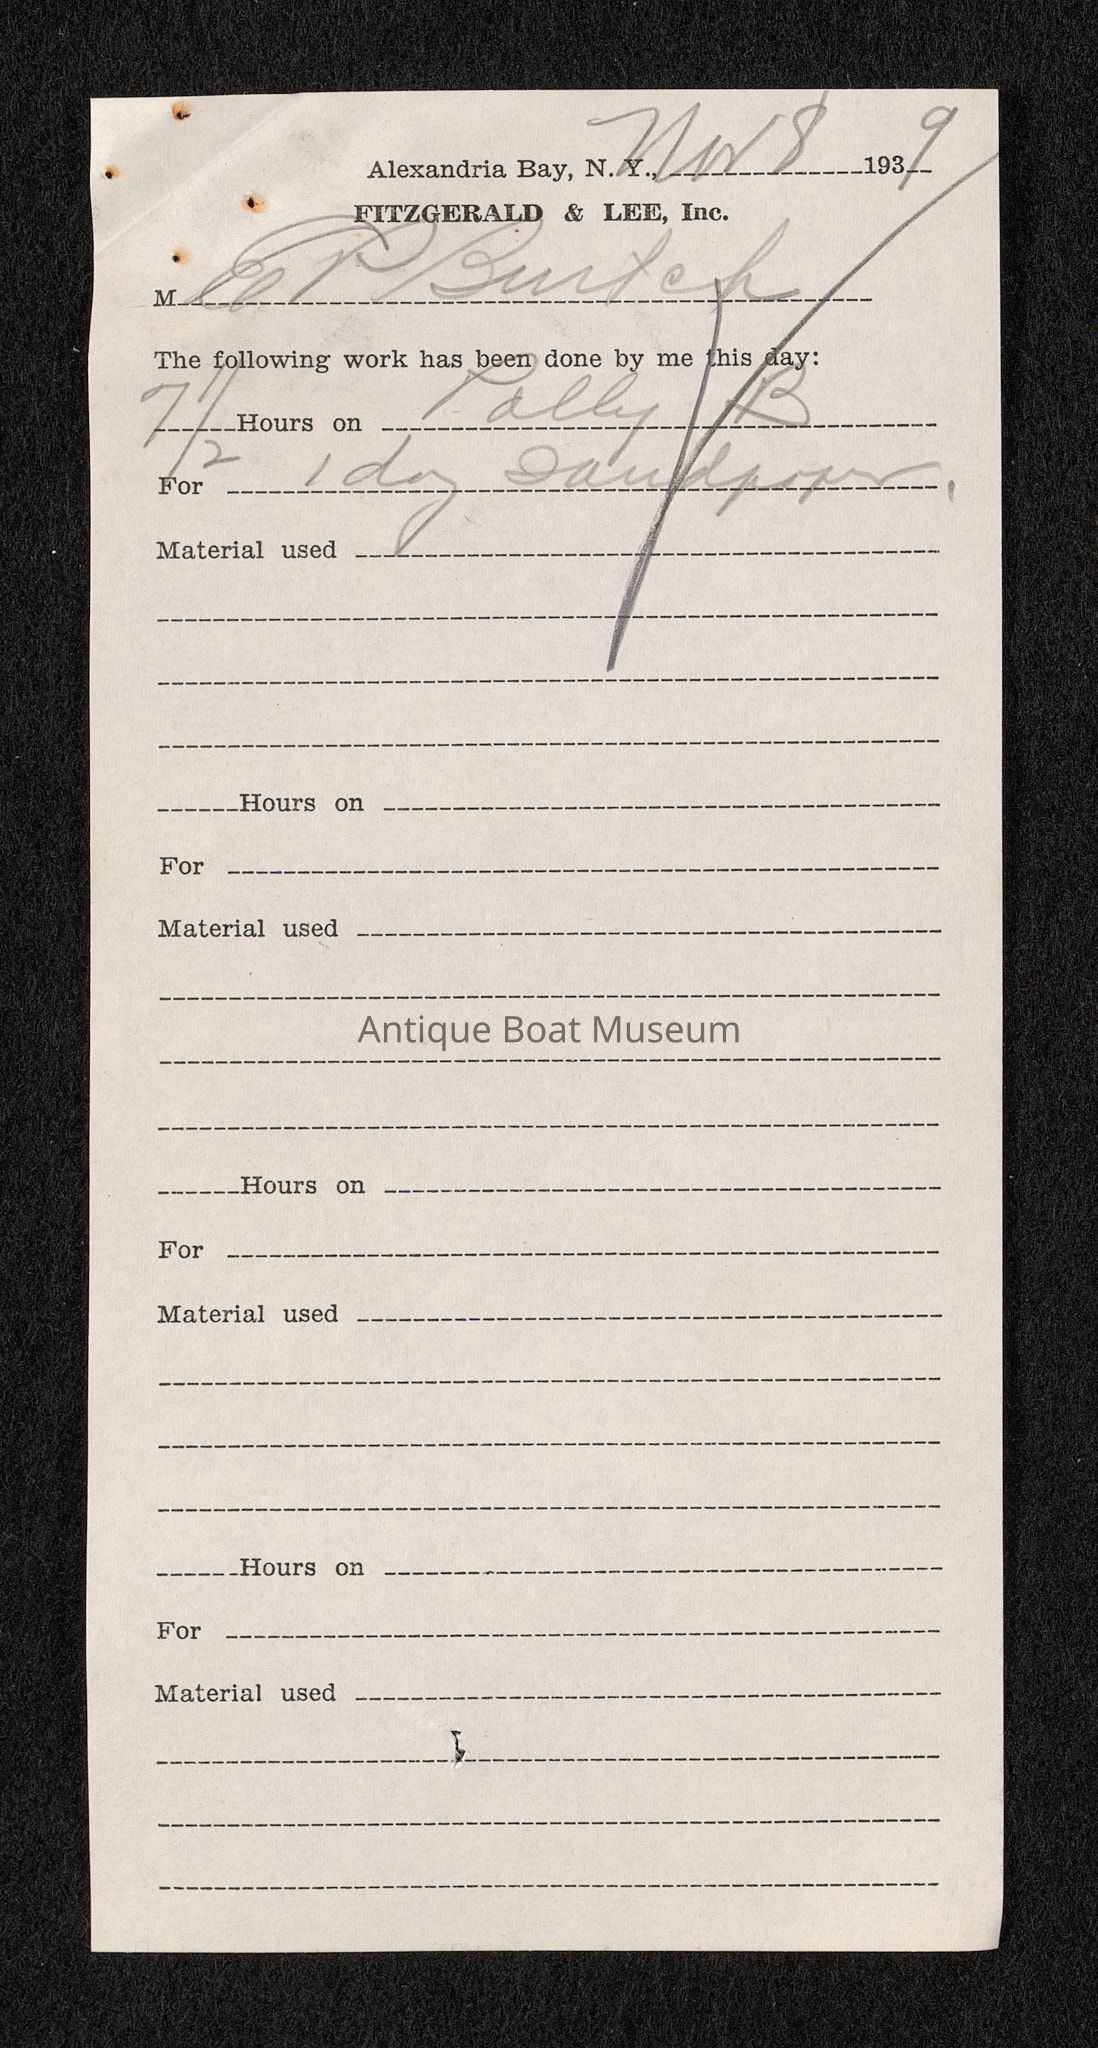 Alexandria Bay, N. Y., Nov 8 1939
FITZGERALD & LEE, Inc.
M EP Burtch
The following work has been done by me this day:
7 1/2 Hours on Polly B
For 1 day Sandpaper
Material used
Hours on
For
Material used
Antique Boat Museum
Hours on
For
Material used
Hours on
For
Material used